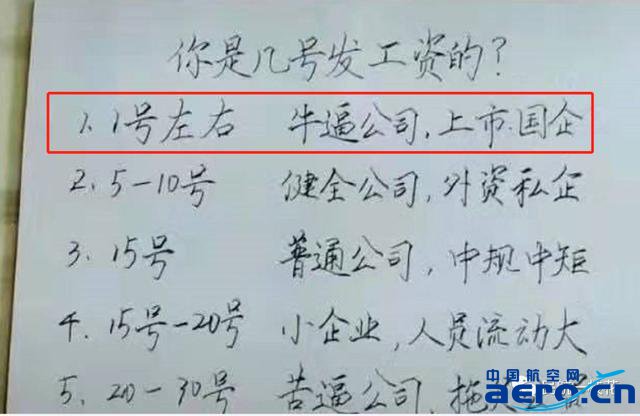 你是几号发工资的?
1、1号左右 牛逼公司,上市.国企
2、5-10号 健全公司,外资私企
3、15号 普通公司,中规中矩
4、15号-20号 小企业,人员流动大
5、20-30号 苦逼公司,拖
中国航空网
aero.cn